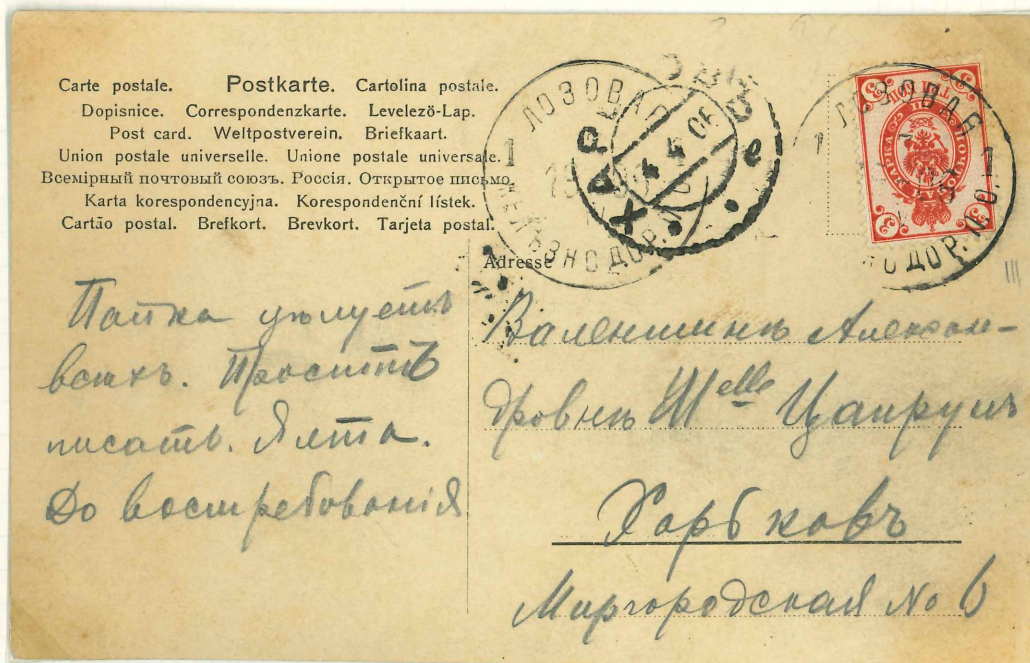 Carte postale. Postkarte. Cartolina postale.
Dopisnice. Correspondenzkarte. Levelező-Lap.
Post card. Weltpostverein. Briefkaart.
Union postale universelle. Unione postale universale.
Всемірный почтовый союзъ. Россія. Открытое письмо.
Karta korespondencyjna. Korespondenční lístek.
Cartão postal. Brefkort. Brevkort. Tarjeta postal.
Adresse
ЛОЗОВАЯ
1
ЖЕЛѢЗНОДОР.
ХАРЬКОВЪ
4 4 06
е
ЛОЗОВАЯ
1 1
НОДОР. П.О.
3 3 3
ПОЧТОВАЯ МАРКА
Папка цѣлуетъ
всѣхъ. Проситъ
писать. Ялта.
До востребованія
Валентинѣ Алексан-
дровнѣ Melle
Харьковъ
Миргородская No 6